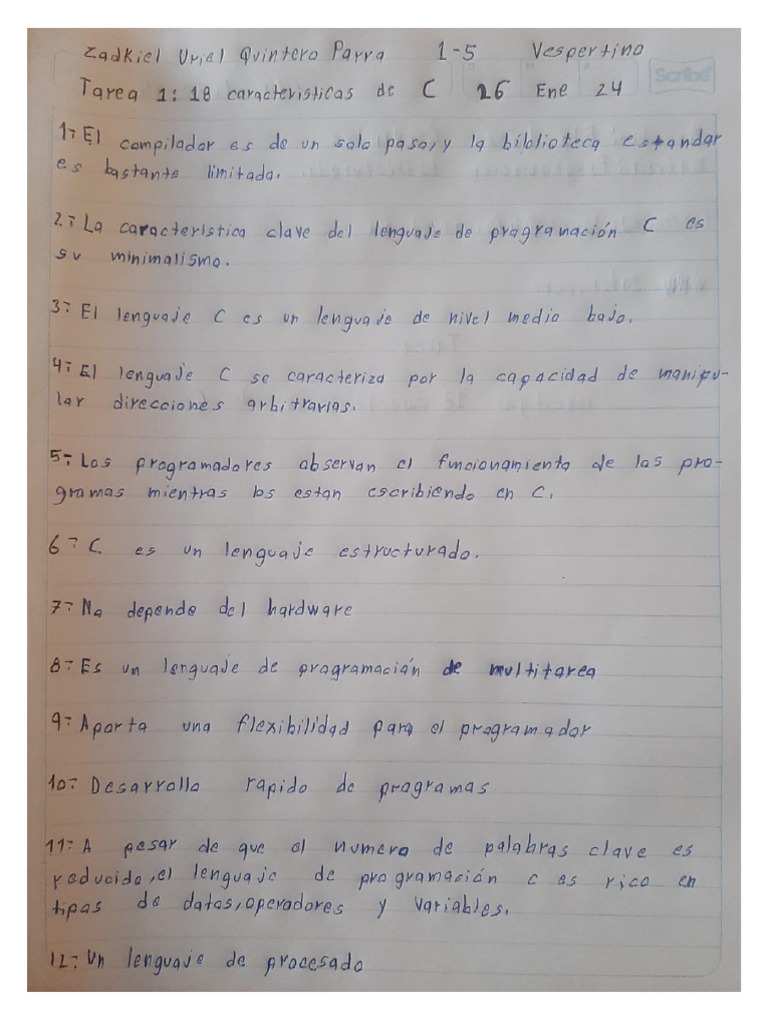 Zadkiel Uriel Quintero Parra 1-5 Vespertino
Tarea 1: 18 caracteristicas de C 26 Ene 24
Scribe
1-El compilador es de un solo paso, y la biblioteca estandar
es bastante limitada.
2.-La caracteristica clave del lenguaje de programación C es
su minimalismo.
3-El lenguaje C es un lenguaje de nivel medio bajo.
4-El lenguaje C se caracteriza por la capacidad de manipu-
lar direcciones arbitrarias.
5-Los programadores observan el funcionamiento de los pro-
gramas mientras los estan escribiendo en C.
6-C es un lenguaje estructurado.
7-No depende del hardware
8-Es un lenguaje de programación de multitarea
9-Aporta una flexibilidad para el programador
10-Desarrollo rapido de programas
11-A pesar de que el numero de palabras clave es
reducido, el lenguaje de programación C es rico en
tipos de datos, operadores y variables.
12-Un lenguaje de procesado